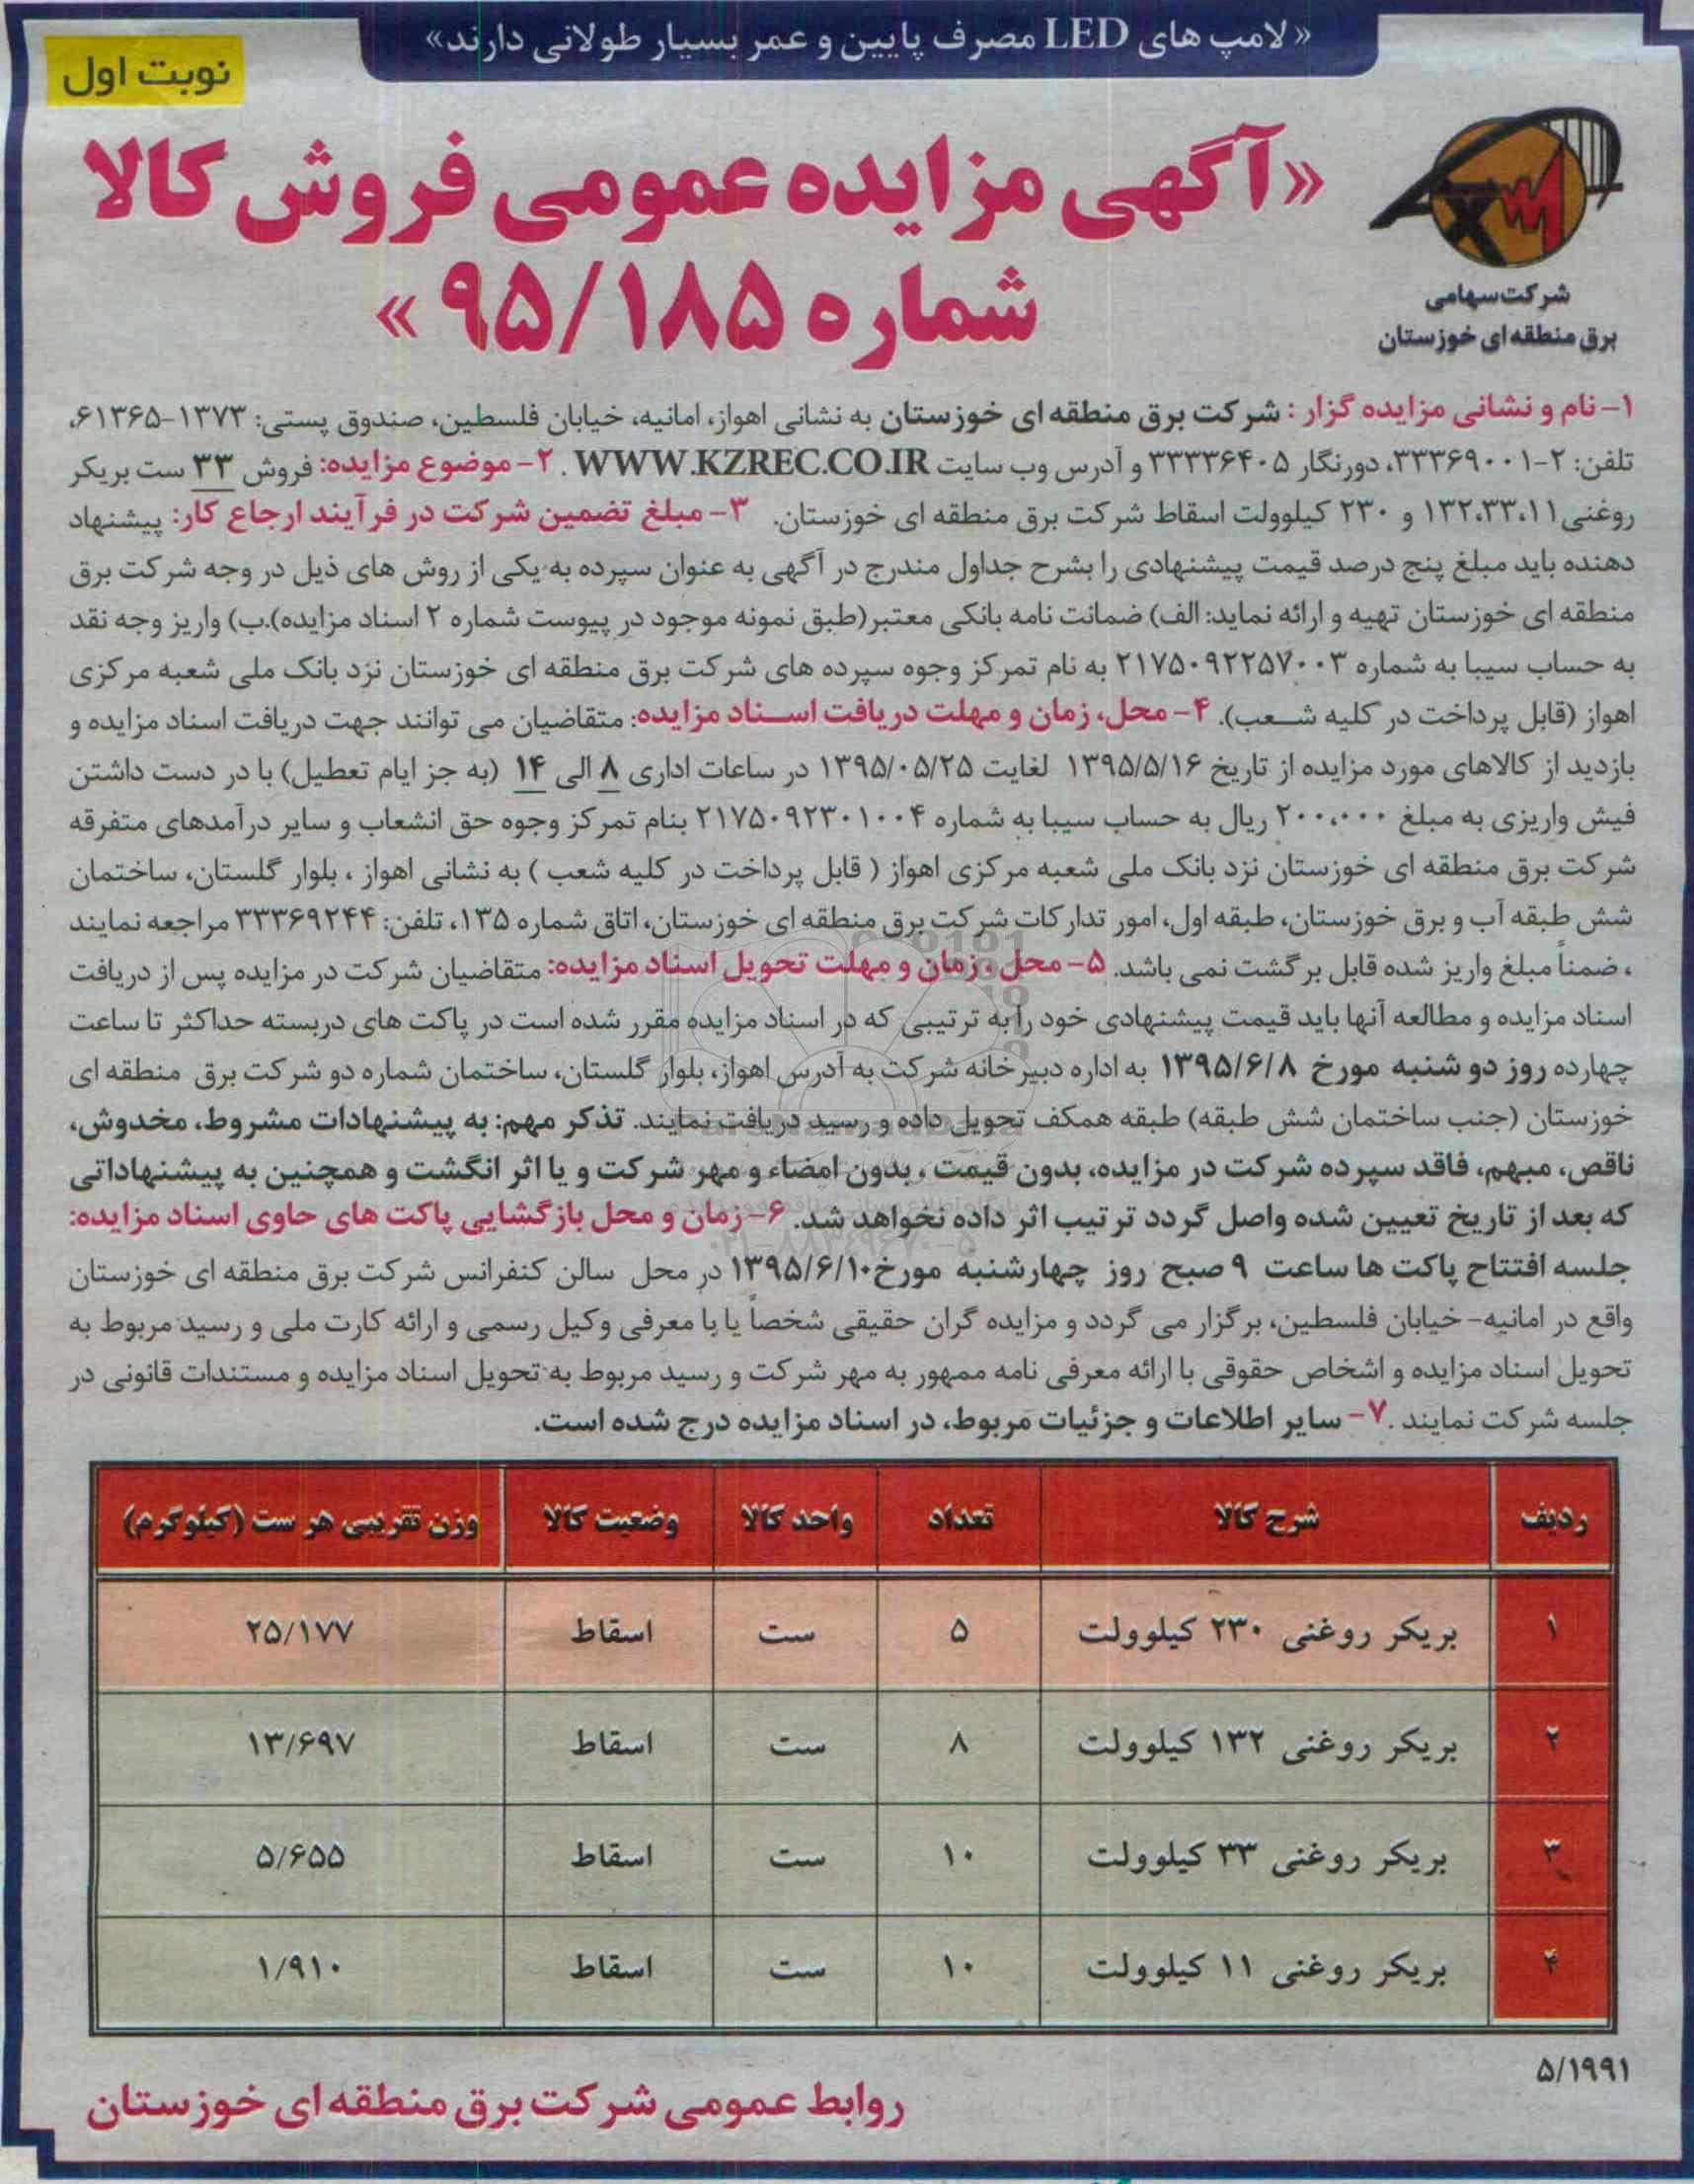 « لامپ های LED مصرف پایین و عمر بسیار طولانی دارند»
نوبت اول
«آگهی مزایده عمومی فروش کالا
شماره ۹۵/۱۸۵ »
شرکت سهامی
برق منطقه ای خوزستان
۱- نام و نشانی مزایده گزار : شرکت برق منطقه ای خوزستان به نشانی اهواز، امانیه، خیابان فلسطین، صندوق پستی: ۱۳۷۳-۶۱۳۶۵،
تلفن: ۲-۳۳۳۶۹۰۰۱، دورنگار ۳۳۳۳۶۴۰۵ و آدرس وب سایت WWW.KZREC.CO.IR . ۲- موضوع مزایده: فروش ۳۳ ست بریکر
روغنی ۱۳۲،۳۳،۱۱ و ۲۳۰ کیلوولت اسقاط شرکت برق منطقه ای خوزستان. ۳- مبلغ تضمین شرکت در فرآیند ارجاع کار: پیشنهاد
دهنده باید مبلغ پنج درصد قیمت پیشنهادی را بشرح جداول مندرج در آگهی به عنوان سپرده به یکی از روش های ذیل در وجه شرکت برق
منطقه ای خوزستان تهیه و ارائه نماید: الف) ضمانت نامه بانکی معتبر(طبق نمونه موجود در پیوست شماره ۲ اسناد مزایده).ب) واریز وجه نقد
به حساب سیبا به شماره ۲۱۷۵۰۹۲۲۵۷۰۰۳ به نام تمرکز وجوه سپرده های شرکت برق منطقه ای خوزستان نزد بانک ملی شعبه مرکزی
اهواز (قابل پرداخت در کلیه شعب). ۴- محل، زمان و مهلت دریافت اسناد مزایده: متقاضیان می توانند جهت دریافت اسناد مزایده و
بازدید از کالاهای مورد مزایده از تاریخ ۱۳۹۵/۵/۱۶ لغایت ۱۳۹۵/۰۵/۲۵ در ساعات اداری ۸ الی ۱۴ (به جز ایام تعطیل) با در دست داشتن
فیش واریزی به مبلغ ۲۰۰،۰۰۰ ریال به حساب سیبا به شماره ۲۱۷۵۰۹۲۳۰۱۰۰۴ بنام تمرکز وجوه حق انشعاب و سایر درآمدهای متفرقه
شرکت برق منطقه ای خوزستان نزد بانک ملی شعبه مرکزی اهواز ( قابل پرداخت در کلیه شعب ) به نشانی اهواز ، بلوار گلستان، ساختمان
شش طبقه آب و برق خوزستان، طبقه اول، امور تدارکات شرکت برق منطقه ای خوزستان، اتاق شماره ۱۳۵، تلفن: ۳۳۳۶۹۲۴۴ مراجعه نمایند
، ضمناً مبلغ واریز شده قابل برگشت نمی باشد. ۵- محل ، زمان و مهلت تحویل اسناد مزایده: متقاضیان شرکت در مزایده پس از دریافت
اسناد مزایده و مطالعه آنها باید قیمت پیشنهادی خود را به ترتیبی که در اسناد مزایده مقرر شده است در پاکت های دربسته حداکثر تا ساعت
چهارده روز دو شنبه مورخ ۱۳۹۵/۶/۸ به اداره دبیرخانه شرکت به آدرس اهواز، بلوار گلستان، ساختمان شماره دو شرکت برق منطقه ای
خوزستان (جنب ساختمان شش طبقه) طبقه همکف تحویل داده و رسید دریافت نمایند. تذکر مهم: به پیشنهادات مشروط، مخدوش،
ناقص، مبهم، فاقد سپرده شرکت در مزایده، بدون قیمت ، بدون امضاء و مهر شرکت و یا اثر انگشت و همچنین به پیشنهاداتی
که بعد از تاریخ تعیین شده واصل گردد ترتیب اثر داده نخواهد شد. ۶- زمان و محل بازگشایی پاکت های حاوی اسناد مزایده:
جلسه افتتاح پاکت ها ساعت ۹ صبح روز چهارشنبه مورخ ۱۳۹۵/۶/۱۰ در محل سالن کنفرانس شرکت برق منطقه ای خوزستان
واقع در امانیه- خیابان فلسطین، برگزار می گردد و مزایده گران حقیقی شخصاً یا با معرفی وکیل رسمی و ارائه کارت ملی و رسید مربوط به
تحویل اسناد مزایده و اشخاص حقوقی با ارائه معرفی نامه ممهور به مهر شرکت و رسید مربوط به تحویل اسناد مزایده و مستندات قانونی در
جلسه شرکت نمایند .۷- سایر اطلاعات و جزئیات مربوط، در اسناد مزایده درج شده است.
ردیف شرح کالا تعداد واحد کالا وضعیت کالا وزن تقریبی هر ست (کیلوگرم)
۱ بریکر روغنی ۲۳۰ کیلوولت ۵ ست اسقاط ۲۵/۱۷۷
۲ بریکر روغنی ۱۳۲ کیلوولت ۸ ست اسقاط ۱۳/۶۹۷
۳ بریکر روغنی ۳۳ کیلوولت ۱۰ ست اسقاط ۵/۶۵۵
۴ بریکر روغنی ۱۱ کیلوولت ۱۰ ست اسقاط ۱/۹۱۰
۵/۱۹۹۱
روابط عمومی شرکت برق منطقه ای خوزستان